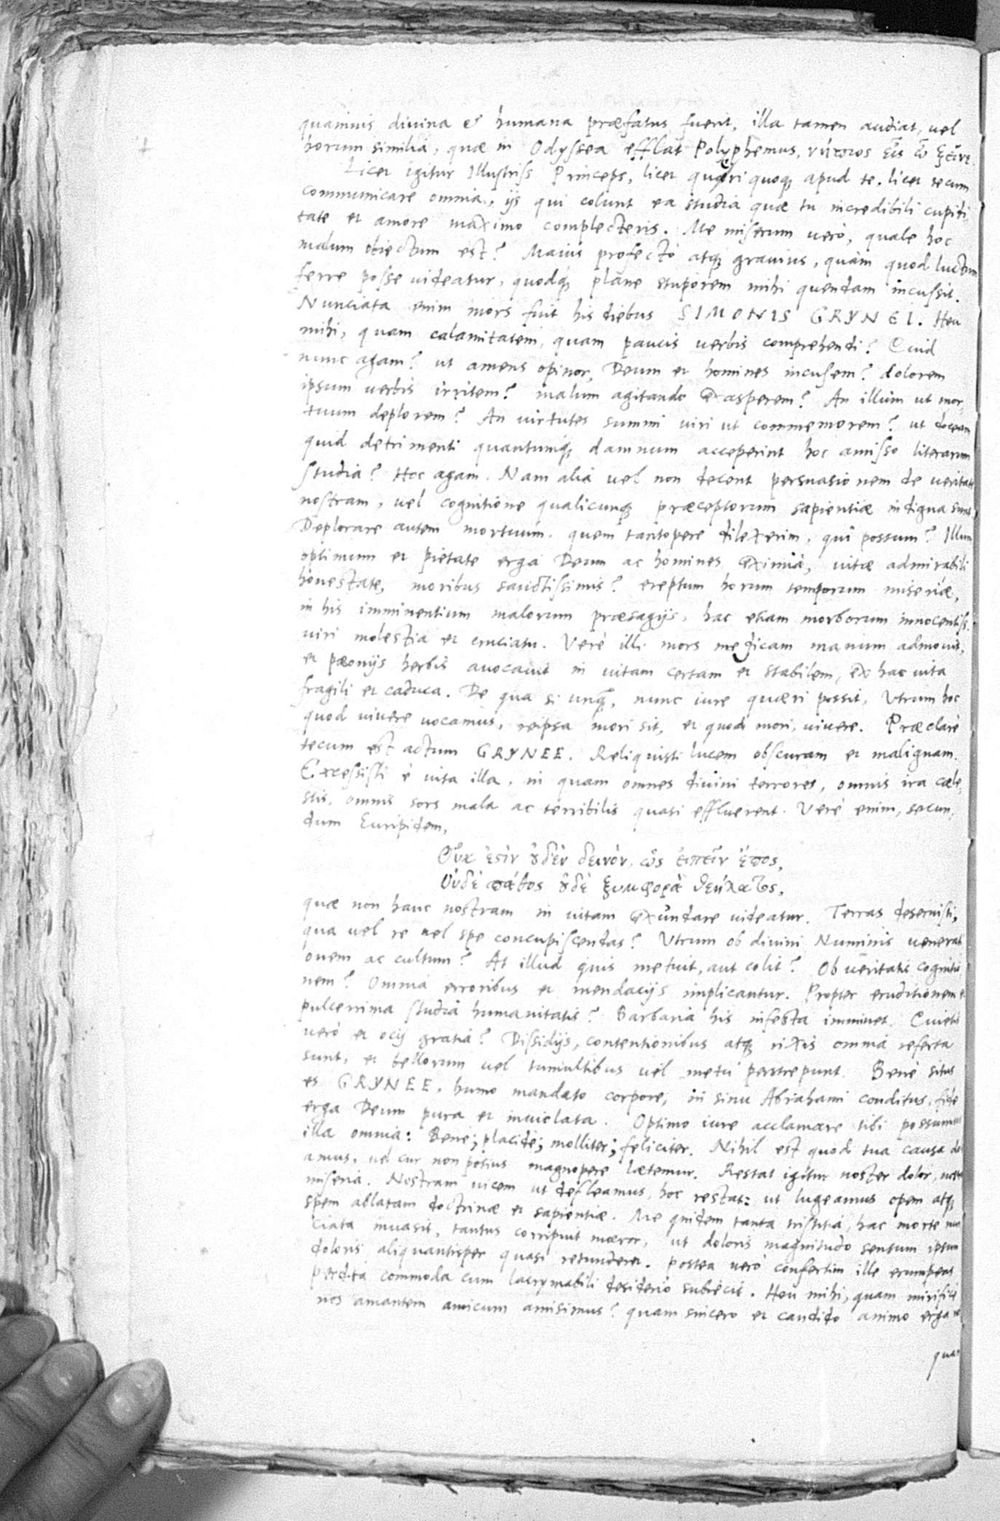 quamuis divina et humana præfatus fuerit, illa tamen audiat, vel
horum similia, quæ in Odyssea efflat Polyphemus, νήπιος εἰς ὦ ξεῖνε
Licet igitur Illustriss Princeps, licet quæri quoq apud te. licet tecum
communicare omnia, ijs qui colunt ea studia quæ tu incredibili cupidi
tate et amore maximo complecteris. Me miserum verò, quale hoc
malum obiectum est? Maius profectò atq gravius, quàm quod luctum
ferre posse videatur, quodq plane stuporem mihi quendam incussit.
Nunciata enim mors fuit his diebus SIMONIS GRYNEI. Heu
mihi, quam calamitatem, quam paucis verbis comprehendi? Quid
nunc agam? ut amens opinor, Deum et homines incusem? dolorem
ipsum verbis irritem? malum agitando exasperem? An illum ut mor
tuum deplorem? An virtutes summi viri ut commemorem? ut doceam
quid detrimenti quantumq damnum acceperint hoc amisso literarum
studia? Hoc agam. Nam alia vel non decent persuasionem de veritate
nostram, vel cognitione qualicunq præceptorum sapientiæ indigna sunt,
Deplorare autem mortuum quem tantopere dilexerim, quî possum? Illum
optimum et pietate erga Deum ac homines eximiâ, vitæ admirabili
honestate, moribus sanctissimis? ereptum horum temporum miseriæ,
in his imminentium malorum præsagijs, hac etiam morborum innocentiss.
viri molestia et cruciatu. Verè illi mors medicam manum admovit,
et pæonijs herbis avocavit in vitam certam et stabilem, ex hac vita
fragili et caduca. De qua si unq, nunc iure quæri possit, Utrum hoc
quod vivere vocamus, reipsa mori sit, et quod mori, vivere. Præclarè
tecum est actum GRYNEE. Reliquisti lucem obscuram et malignam.
Excessisti è vita illa, in quam omnes divini terrores, omnis ira cæle
stis, omnis sors mala ac terribilis quasi effluerent. Verè enim, secun
dum Euripidem,
Οὐκ ἔστιν οὐδὲν δεινὸν, ὡς εἰπεῖν ἔπος,
Οὐδὲ πάθος οὐδὲ ξυμφορὰ θεήλατος,
quæ non hanc nostram in vitam exundare videatur. Terras deseruisti,
qua vel re vel spe concupiscendas? Utrum ob divini Numinis venerati
onem ac cultum? At illud quis metuit, aut colit? Ob veritatis cognitio
nem? Omnia erroribus et mendacijs implicantur. Propter eruditionem et
pulcerrima studia humanitatis? Barbaria his infesta imminet. Quietis
verò et ocij gratia? Dissidijs, contentionibus atq rixis omnia referta
sunt, et bellorum vel tumultibus vel metu perstrepunt. Bene situs
es GRYNEE, humo mandato corpore, in sinu Abrahami conditus, fide
erga Deum pura et inviolata. Optimo iure acclamare tibi possumus
illa omnia: Bene; placide; molliter; feliciter. Nihil est quod tua causa do
amus, vel cur non potius magnopere lætemur. Restat igitur noster dolor, nostra
miseria. Nostram vicem ut defleamus, hoc restat: ut lugeamus opem atq
spem ablatam doctrinæ et sapientiæ. Me quidem tanta tristitia, hac morte nun
ciata invasit, tantus corripuit mæror, ut doloris magnitudo sensum ipsum
doloris aliquantisper quasi retunderet. postea verò confertim ille erumpens
perdita commoda cum lacrymabili desiderio subiecit. Heu mihi, quam mirifice
nos amantem amicum amisimus? quam sincero et candido animo erga
qua